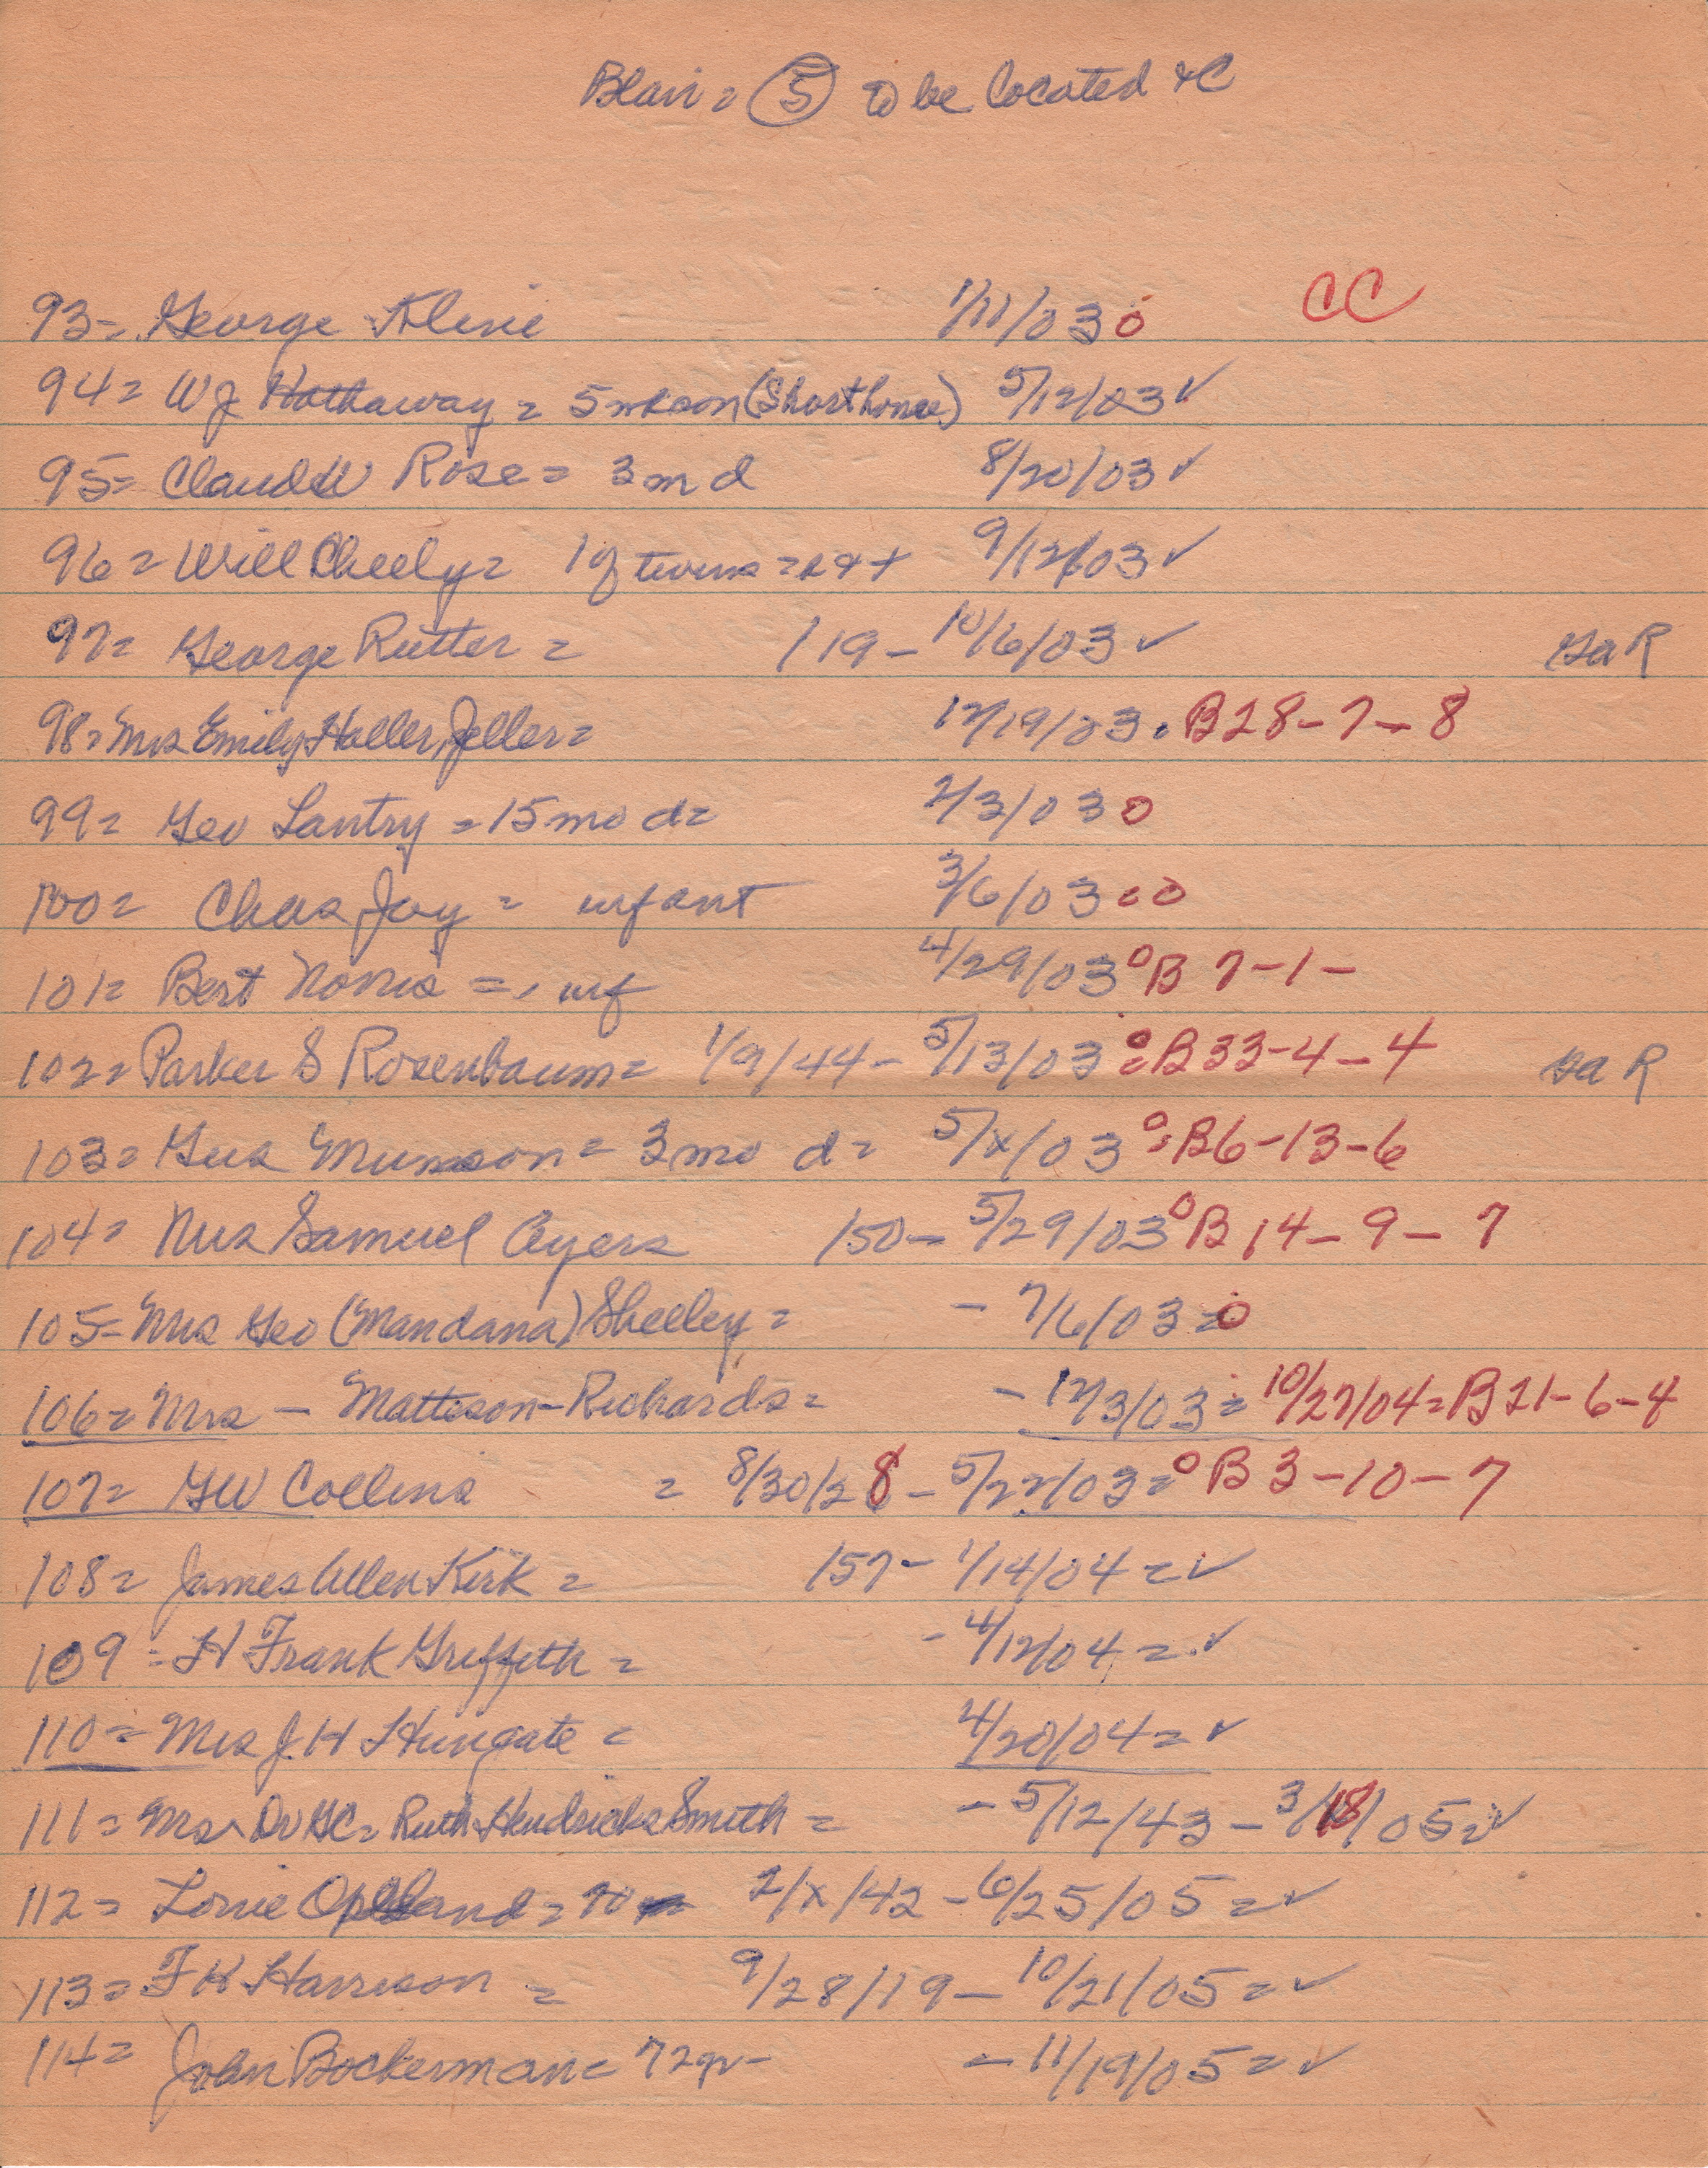 Blair = 5 to be located &C
CC
93 = George Kline 1/11/03 0
94 = WJ Hathaway = 5 mo son (Shorthouse) 5/12/03 ✓
95 = Claude W Rose = 3 m d 8/20/03 ✓
96 = Will Cheely = 1 of twins = 9/12/03 ✓
97 = George Rutter = /19 - 10/6/03 ✓ GaR
98 = Mrs Emily Haller Jeller = 12/19/03 . B28-7-8
99 = Geo Lantry = 15 mo d = 2/3/03 0
100 = Chas Joy = infant 3/6/03 = 0
101 = Bert Norris = , inf 4/29/03 0 B 7-1-
102 = Parker S Rosenbaum = 1/9/44 - 5/13/03 0 = B33-4-4 Ga R
103 = Gus Munson = 3 mo d = 5/x/03 0 = B6-13-6
104 = Mrs Samuel Ayers /50 - 5/29/03 0 B 14-9-7
105 = Mrs Geo (Mandana) Sheeley = - 7/6/03 = 0
106 = Mrs - Matteson-Richards = - 12/3/03 = 10/27/04 = B21-6-4
107 = GW Collins = 8/30/28 - 5/22/03 = 0 B 3-10-7
108 = James Allen Kirk = /57 - 1/14/04 = ✓
109 = H Frank Griffith = - 4/12/04 = ✓
110 = Mrs J H Hungate = 4/20/04 = ✓
111 = Mrs Dr GC = Ruth Hendricks Smith = - 5/12/43 - 3/18/05 = ✓
112 = Lorrie = 2/x/42 - 6/25/05 = ✓
113 = F H Harrison = 9/28/19 - 10/21/05 = ✓
114 = John Bockerman = 72 yr - - 11/19/05 = ✓